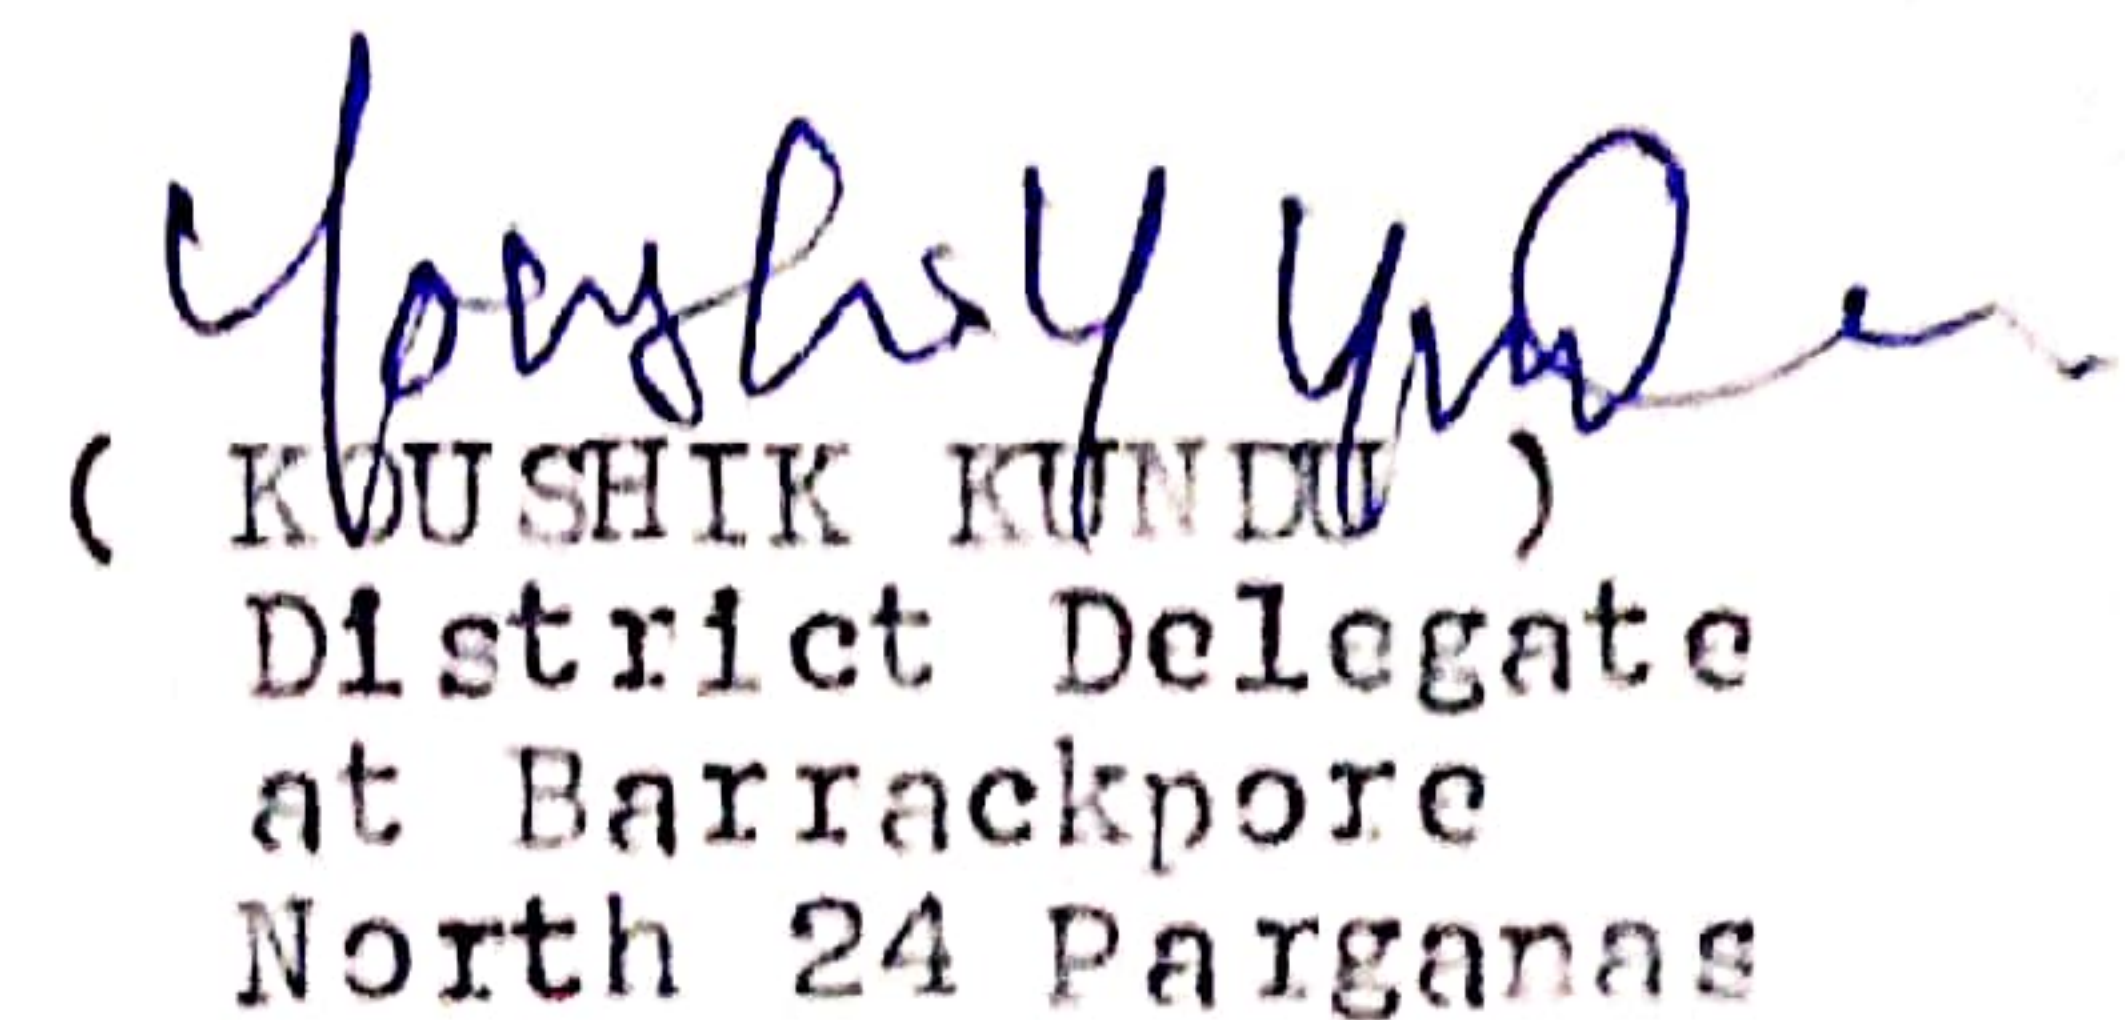 Koushik Kundu
( KOUSHIK KUNDU )
District Delegate
at Barrackpore
North 24 Parganas